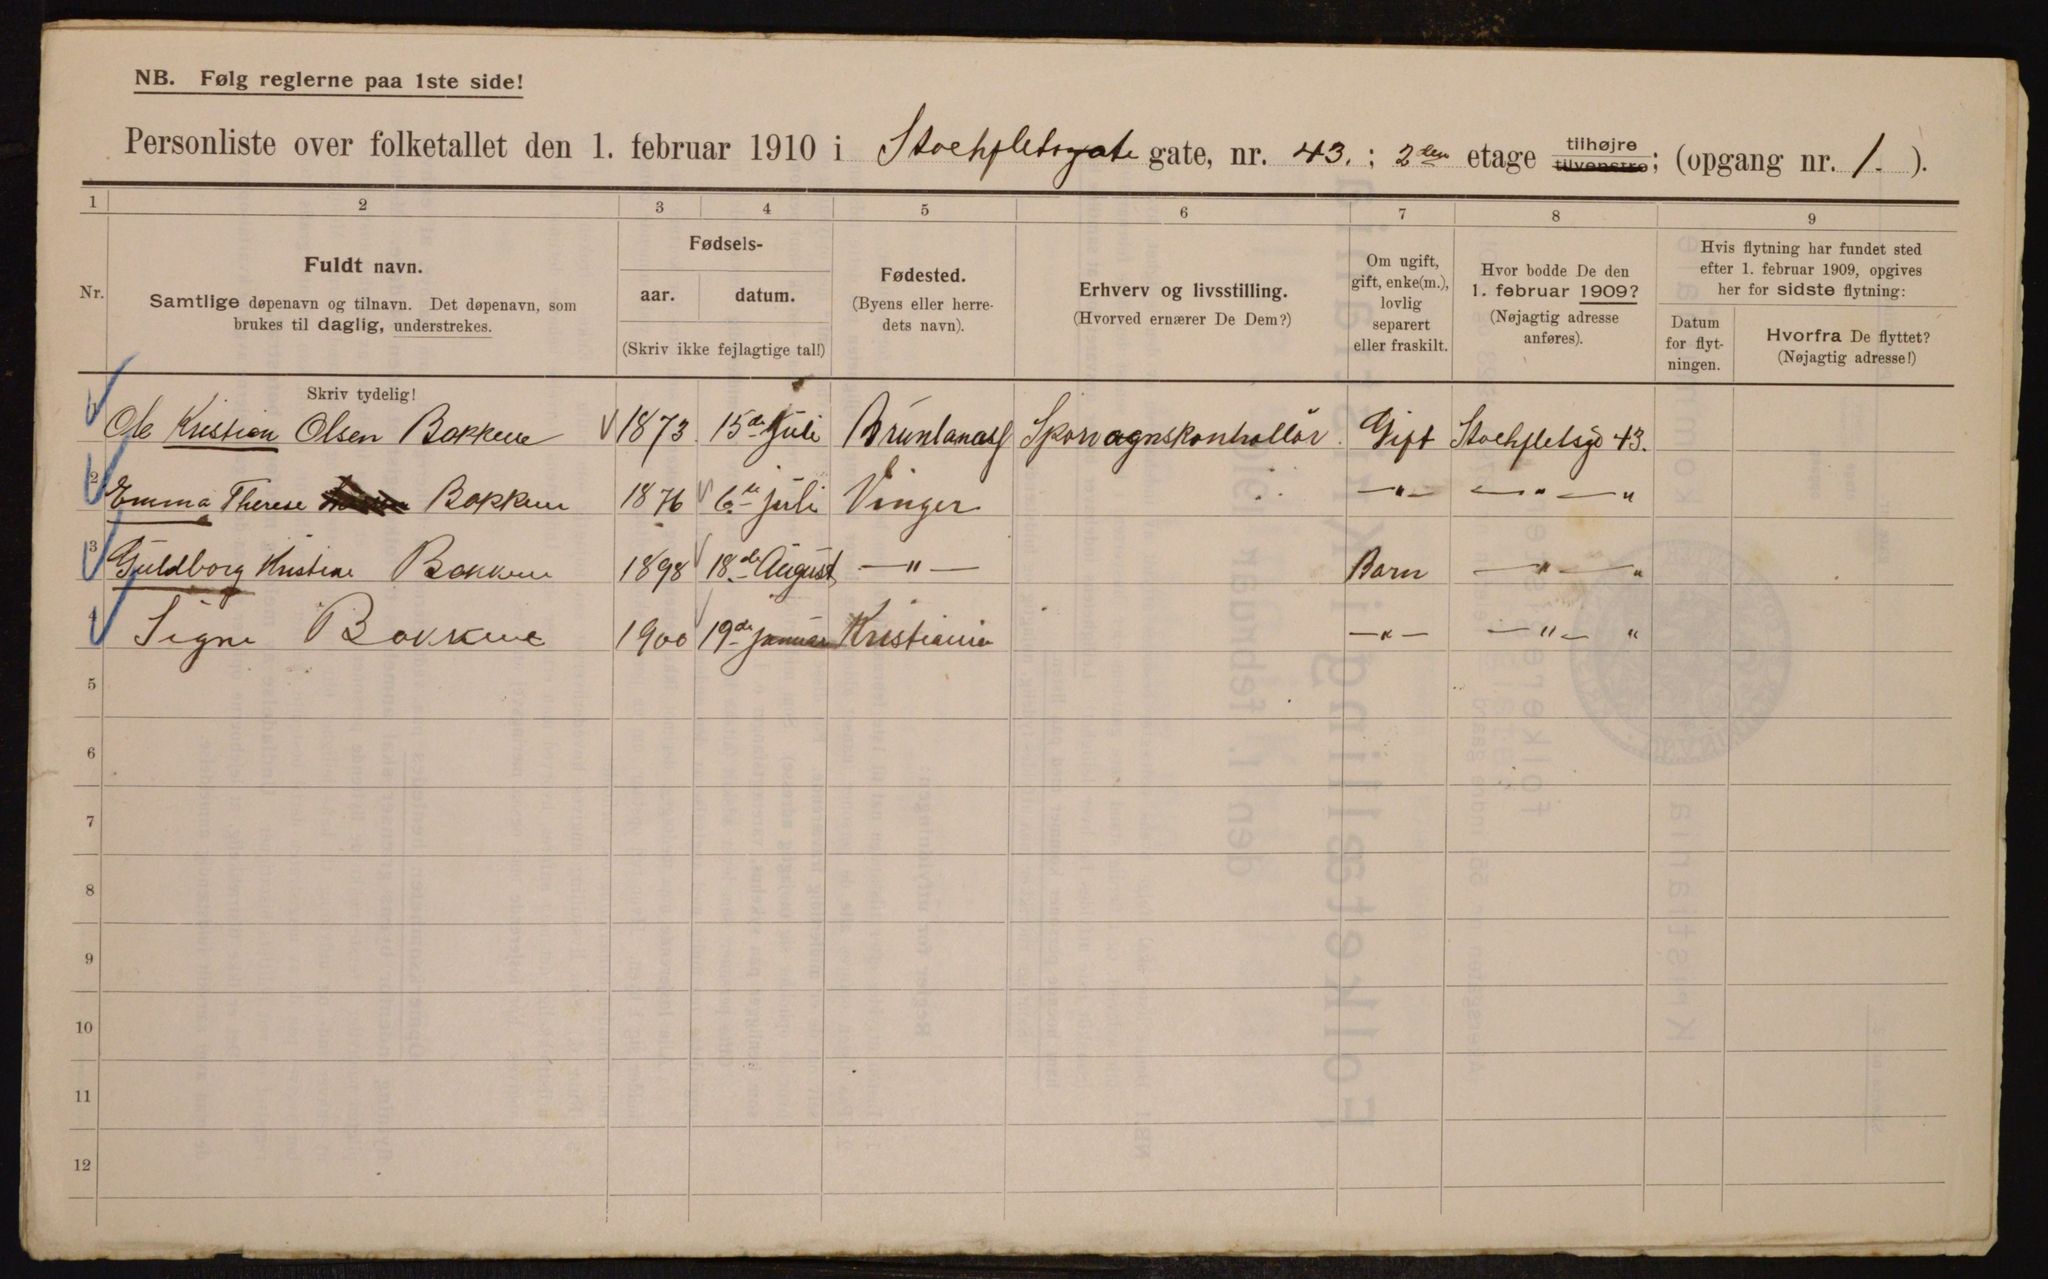 NB. Følg reglerne paa 1ste side!
Personliste over folketallet den 1. februar 1910 i Stockfletsgate gate, nr. 43. ; 2den etage tilhøjre tilvenstre; (opgang nr. 1. ).
1 2 3 4 5 6 7 8 9
Nr.
Fuldt navn.
Samtlige døpenavn og tilnavn. Det døpenavn, som
brukes til daglig, understrekes.
Fødsels-
aar. datum.
(Skriv ikke fejlagtige tal!)
Fødested.
(Byens eller herre-
dets navn).
Erhverv og livsstilling.
(Hvorved ernærer De Dem?)
Om ugift,
gift, enke(m.),
lovlig
separert
eller fraskilt.
Hvor bodde De den
1. februar 1909?
(Nøjagtig adresse
anføres).
Hvis flytning har fundet sted
efter 1. februar 1909, opgives
her for sidste flytning:
Datum
for flyt-
ningen.
Hvorfra De flyttet?
(Nøjagtig adresse!)
Skriv tydelig!
Ole Kristian Olsen Bakkene 1873 15de Juli Brunlanæs Sporvagnskontrollør Gift Stockfletsgd 43.
2 Emma Therese Bakkene 1876 6te juli Vinger —"— —"— "
3 Guldborg Kristine Bakkene 1898 18de August —"— Barn —"— "
Signe Bakkene 1900 19de januar Kristiania —"— —"— "
5
6
7
8
9
10
11
12